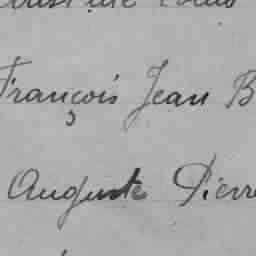 François Jean B
Auguste Pierre